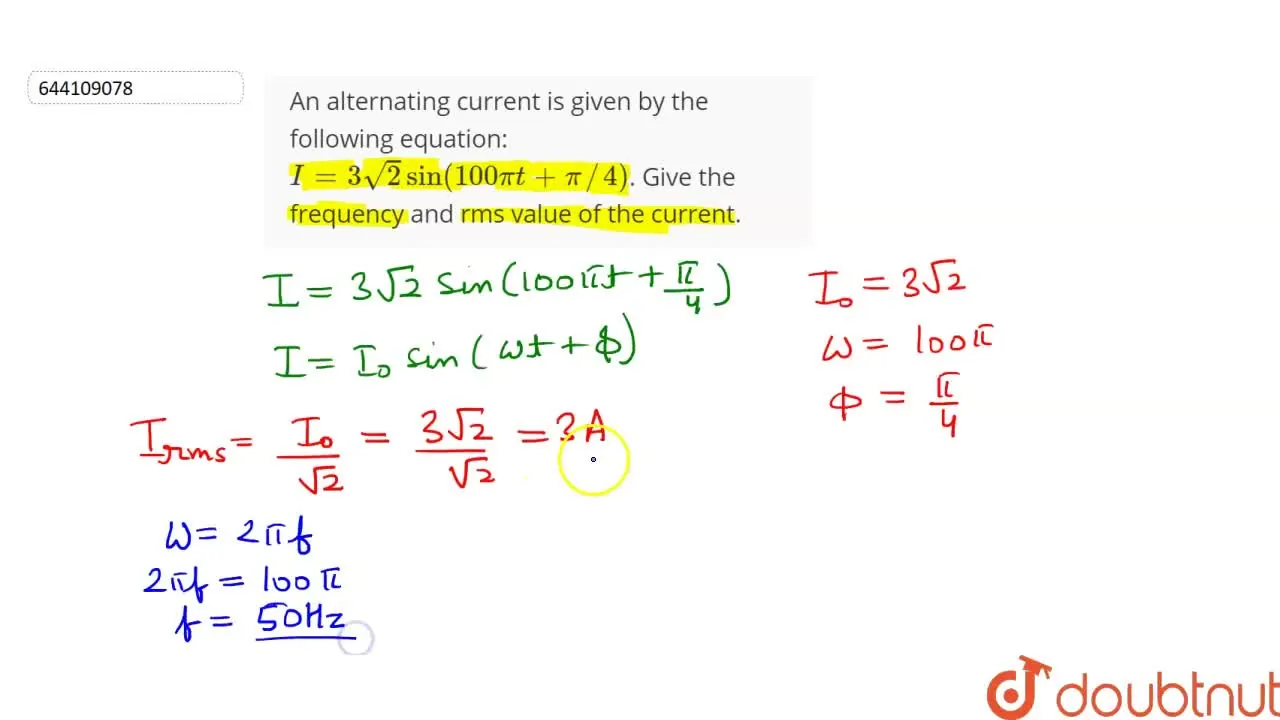 644109078
An alternating current is given by the
following equation:
I = 3√2 sin(100πt + π/4). Give the
frequency and rms value of the current.
I = 3√2 sin(100πt + π/4)
I₀ = 3√2
I = I₀ sin(ωt + ϕ)
ω = 100π
ϕ = π/4
Irms = I₀/√2 = 3√2/√2 = 3A
ω = 2πf
2πf = 100π
f = 50Hz
doubtnut